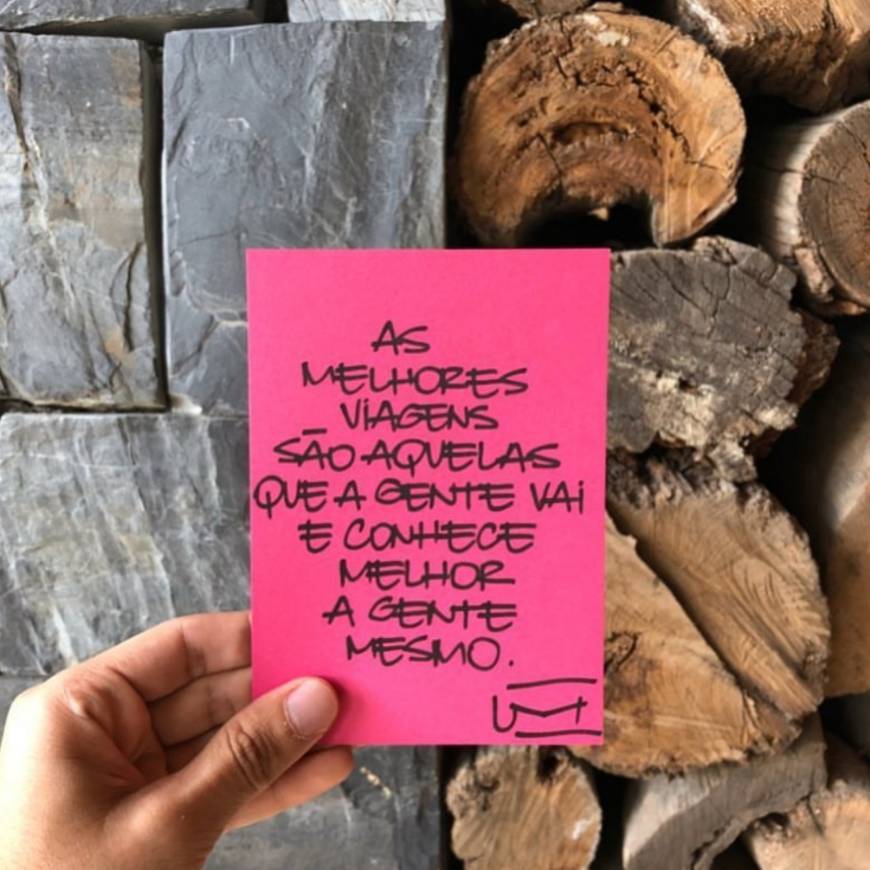 AS
MELHORES
VIAGENS
SÃO AQUELAS
QUE A GENTE VAI
E CONHECE
MELHOR
A GENTE
MESMO.